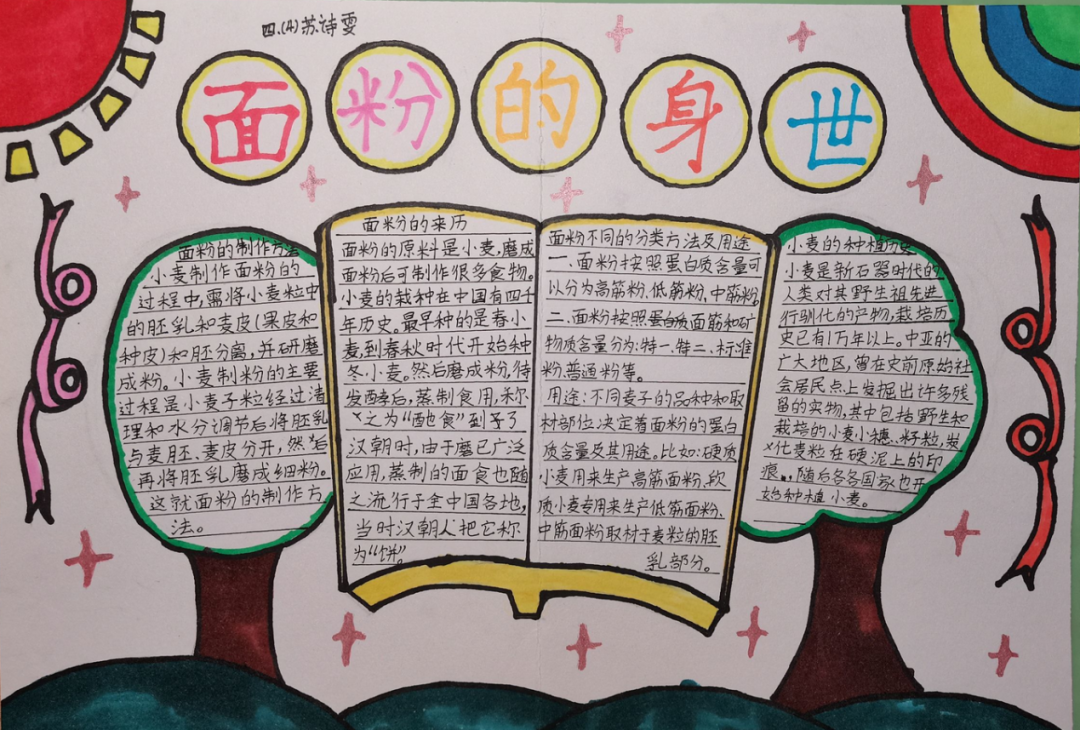 四.(4)苏诗雯
面粉的身世
面粉的制作方法
小麦制作面粉的
过程中,需将小麦粒中
的胚乳和麦皮(果皮和
种皮)和胚分离,并研磨
成粉。小麦制粉的主要
过程是小麦子粒经过清
理和水分调节后将胚乳
与麦胚、麦皮分开,然后
再将胚乳磨成细粉。
这就面粉的制作方
法。
面粉的来历
面粉的原料是小麦,磨成
面粉后可制作很多食物。
小麦的栽种在中国有四千
年历史。最早种的是春小
麦,到春秋时代开始种
冬小麦。然后磨成粉,待
发酵后,蒸制食用,称
之为“酏食”到了
汉朝时,由于磨已广泛
应用,蒸制的面食也随
之流行于全中国各地,
当时汉朝人把它称
为“饼”。
面粉不同的分类方法及用途
一.面粉按照蛋白质含量可
以分为高筋粉、低筋粉、中筋粉。
二.面粉按照蛋白质面筋和矿
物质含量分为:特一、特二、标准
粉、普通粉等。
用途:不同麦子的品种和取
材部位,决定着面粉的蛋白
质含量及其用途。比如:硬质
小麦用来生产高筋面粉、软
质小麦专用来生产低筋面粉、
中筋面粉取材于麦粒的胚
乳部分。
小麦的种植历史
小麦是新石器时代的
人类对其野生祖先进
行驯化的产物,栽培历
史已有1万年以上。中亚的
广大地区,曾在史前原始社
会居民点上发掘出许多残
留的实物,其中包括野生和
栽培的小麦小穗、籽粒,炭
化麦粒在硬泥上的印
痕.,随后各各国家也开
始种植小麦。